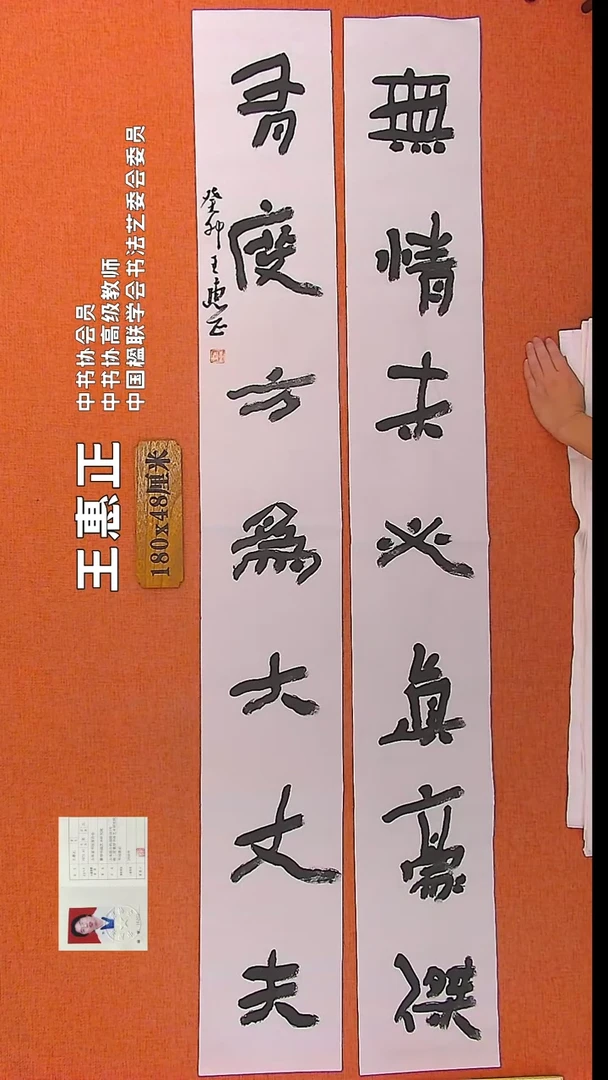 無情未必真豪傑
有度方為大丈夫
癸卯王惠正
中书协会员
中书协高级教师
中国楹联学会书法艺委会委员
王惠正
180x48厘米